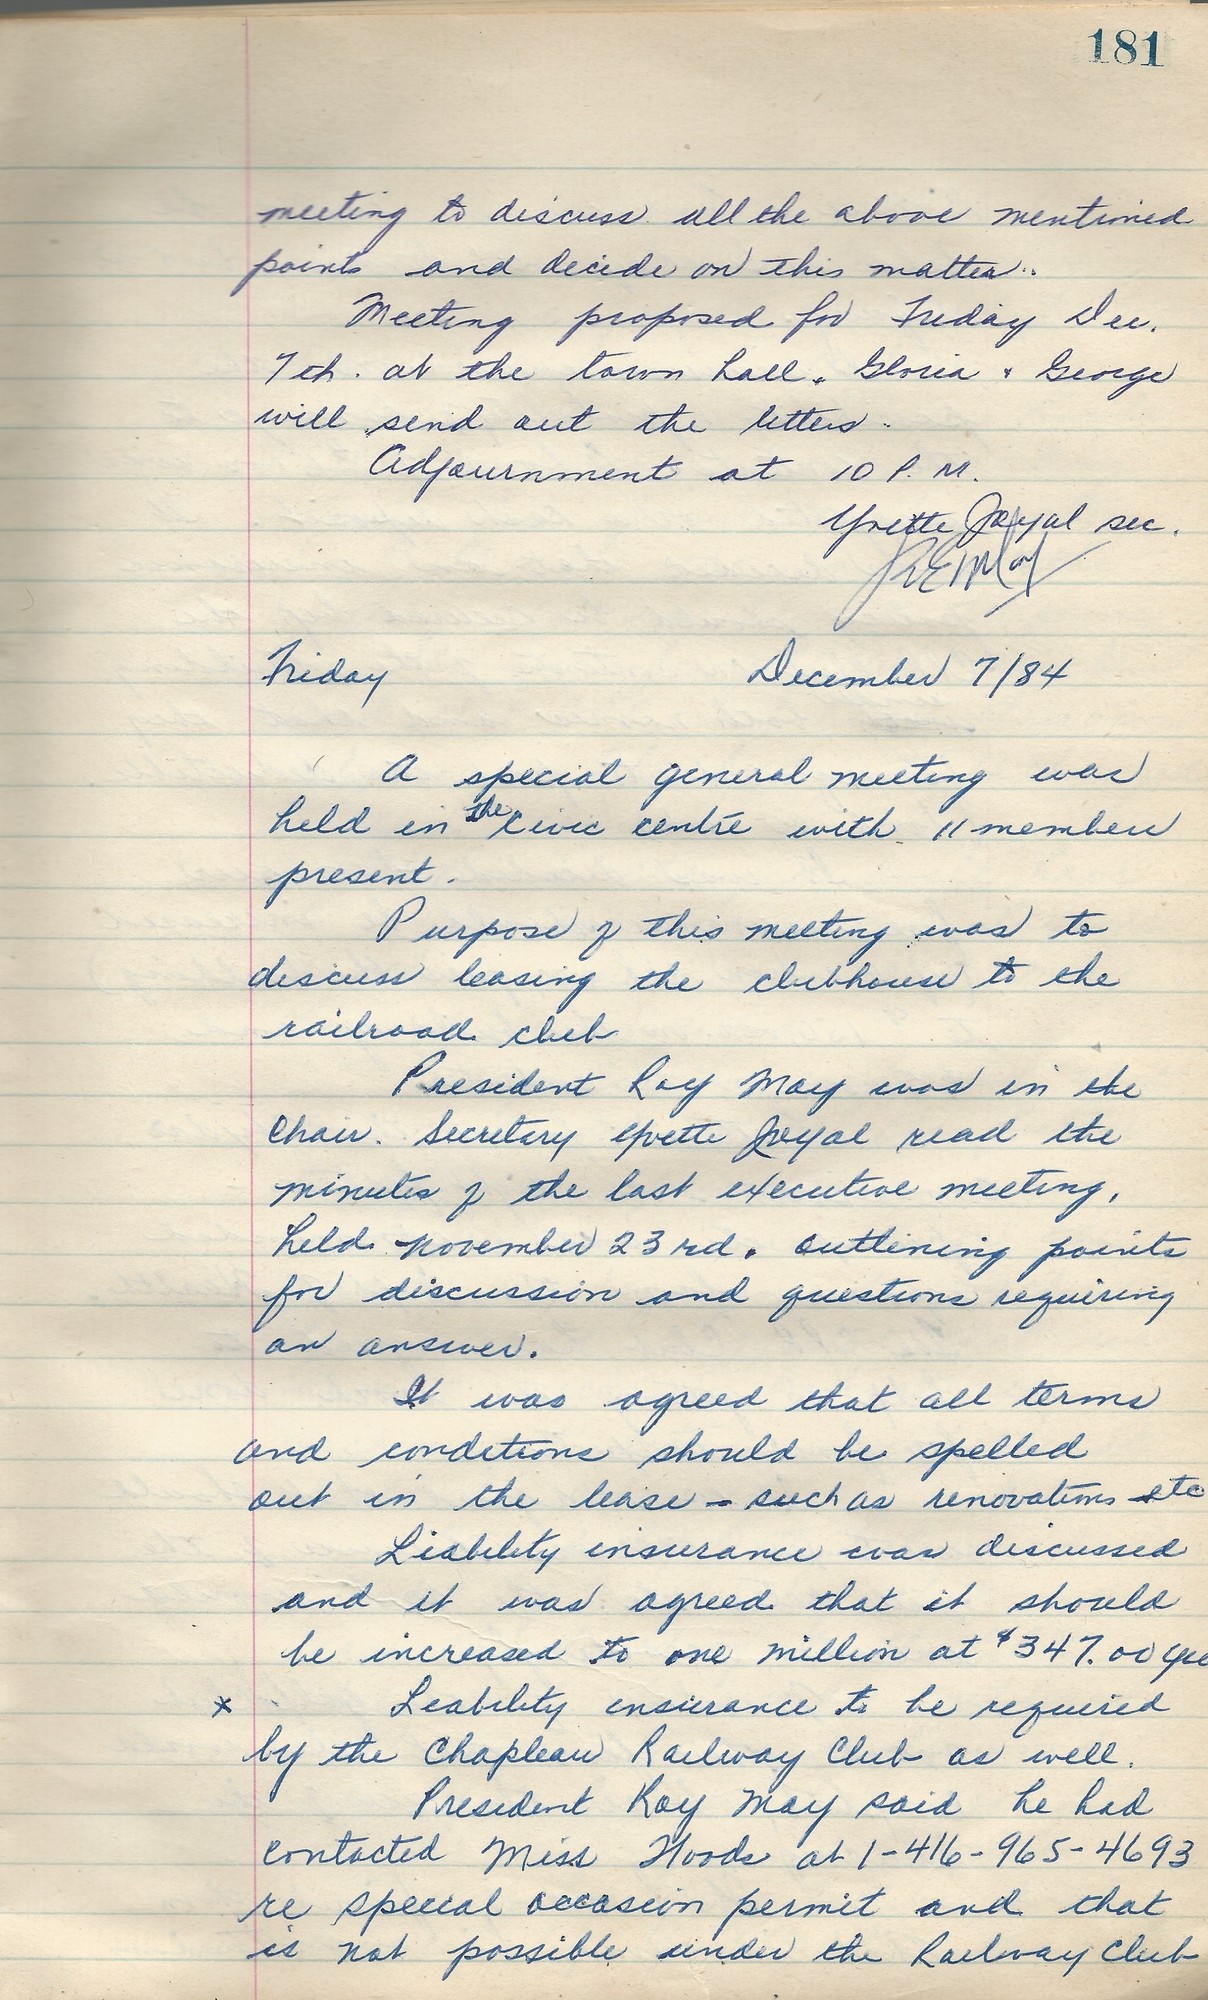 181
meeting to discuss all the above mentioned
points and decide on this matter.
Meeting proposed for Friday Dec.
7th. at the town hall. Gloria & George
will send out the letters.
Adjournment at 10 P.M.
Yvette Joyal sec.
Friday December 7/84
A special general meeting was
held in the Civic centre with 11 members
present.
Purpose of this meeting was to
discuss leasing the clubhouse to the
railroad club
President Roy May was in the
Chair. Secretary Yvette Joyal read the
minutes of the last executive meeting,
held November 23rd. outlining points
for discussion and questions requiring
an answer.
It was agreed that all terms
and conditions should be spelled
out in the lease - such as renovations etc
Liability insurance was discussed
and it was agreed that it should
be increased to one million at $347.00
* Liability insurance to be required
by the Chapleau Railway Club as well.
President Roy May said he had
contacted Miss at 1-416-965-4693
re special occasion permit and that
is not possible under the Railway Club